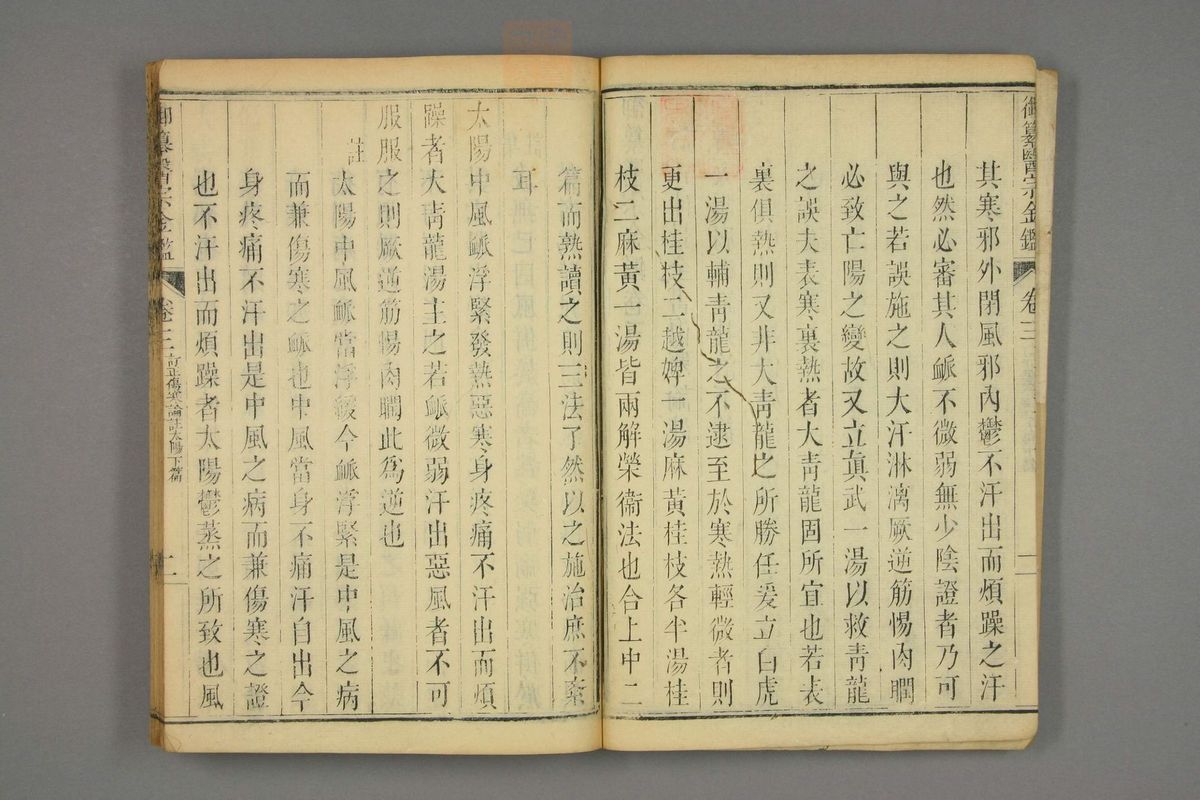 御纂醫宗金鑑 卷三 二
其寒邪外閉風邪內鬱不汗出而煩躁之汗
也然必審其人脈不微弱無少陰證者乃可
與之若誤施之則大汗淋漓厥逆筋惕肉瞤
必致亡陽之變故又立眞武一湯以救靑龍
之誤夫表寒裏熱者大靑龍固所宜也若表
裏俱熱則又非大靑龍之所勝任爰立白虎
一湯以輔靑龍之不逮至於寒熱輕微者則
更出桂枝二越婢一湯麻黃桂枝各半湯桂
枝二麻黃一湯皆兩解榮衞法也合上中二
篇而熟讀之則三法了然以之施治庶不紊
太陽中風脈浮緊發熱惡寒身疼痛不汗出而煩
躁者大靑龍湯主之若脈微弱汗出惡風者不可
服服之則厥逆筋惕肉瞤此爲逆也
註
太陽中風脈當浮緩今脈浮緊是中風之病
而兼傷寒之脈也中風當身不痛汗自出今
身疼痛不汗出是中風之病而兼傷寒之證
也不汗出而煩躁者太陽鬱蒸之所致也風
御纂醫宗金鑑 卷三 訂正傷寒論註太陽下篇 二